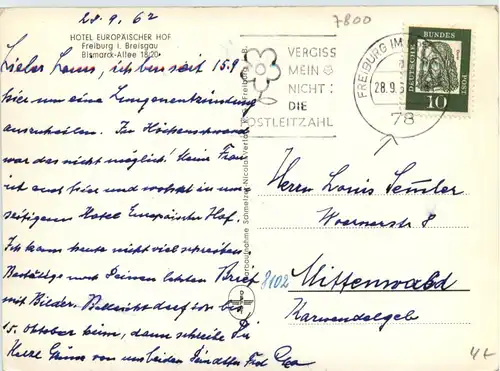 28.9.62
7800
HOTEL EUROPÄISCHER HOF
Freiburg i. Breisgau
Bismarck-Allee 18/20
Lieber Louis, ich bin seit 15.9
hier um eine Lungenentzündung
auszuheilen. In Höchenschwand
war das nicht möglich! Meine Frau
ist auch hier und wohnt in
Hotel Europäischer Hof.
Ich kann heute nicht viel schreiben
Bestätige noch Deinen letzten Brief
mit Bilder. bis
15. Oktober hier, dann schreibe Dir
Grüsse von uns beiden
VERGISS
MEIN
NICHT
DIE
POSTLEITZAHL
FREIBURG IM
28.9.6
78
DEUTSCHE BUNDES POST
10
Farbaufnahme Schmelzle Nicolai Verlag Freiburg i. B.
Herrn Louis Semler
8102 Mittenwald
Karwendelgeb